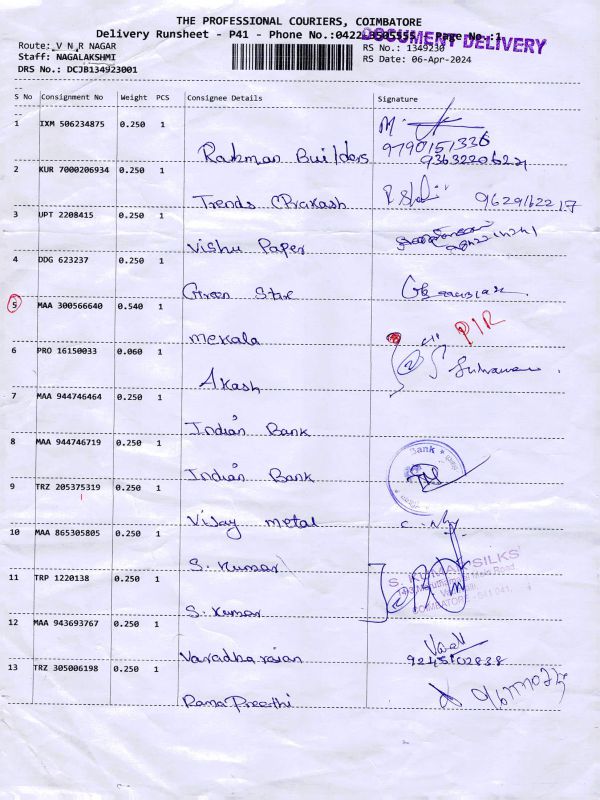 THE PROFESSIONAL COURIERS, COIMBATORE
Delivery Runsheet - P41 - Phone No.:0422 Page No.:1
DOCUMENT DELIVERY
Route: V N R NAGAR
Staff: NAGALAKSHMI
DRS No.: DCJB134923001
RS No.: 1349230
RS Date: 06-Apr-2024
S No Consignment No Weight PCS Consignee Details Signature
1 IXM 506234875 0.250 1
Rahman Builders 9790151336
9363220622
2 KUR 7000206934 0.250 1
Trends (Prakash 9629162217
3 UPT 2208415 0.250 1
Vishu Paper
4 DDG 623237 0.250 1
Green Star
5 MAA 300566640 0.540 1
Mekala P/R
6 PRO 16150033 0.060 1
Akash
7 MAA 944746464 0.250 1
Indian Bank
8 MAA 944746719 0.250 1
Indian Bank
Bank
9 TRZ 205375319 0.250 1
Vijay metal
10 MAA 865305805 0.250 1
S. Kumar
S. KUMAR SILKS
Main Road
COIMBATORE - 641 041.
11 TRP 1220138 0.250 1
S. Kumar
12 MAA 943693767 0.250 1
Varadharajan 9245102838
13 TRZ 305006198 0.250 1
Rama Preethi